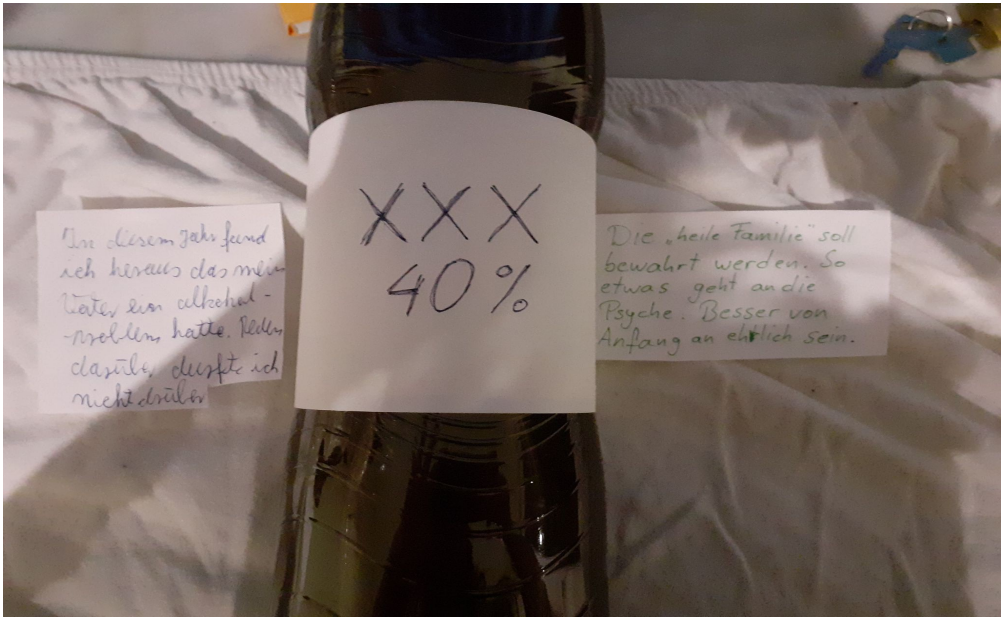 In diesem Jahr fand
ich heraus das mein
Vater ein alkohol-
-problem hatte. Reden
darüber durfte ich
nicht drüber
XXX
40%
Die „heile Familie" soll
bewahrt werden. So
etwas geht an die
Psyche. Besser von
Anfang an ehrlich sein.